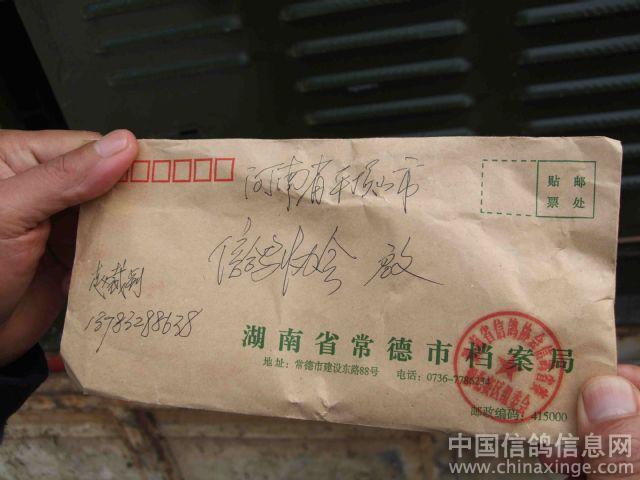 河南省平顶山市
贴邮
票处
信鸽协会 启
13783288638
湖南省常德市档案局
地址：常德市建设东路88号 电话：0736-7786234
邮政编码：415000
中国信鸽信息网
www.chinaxinge.com